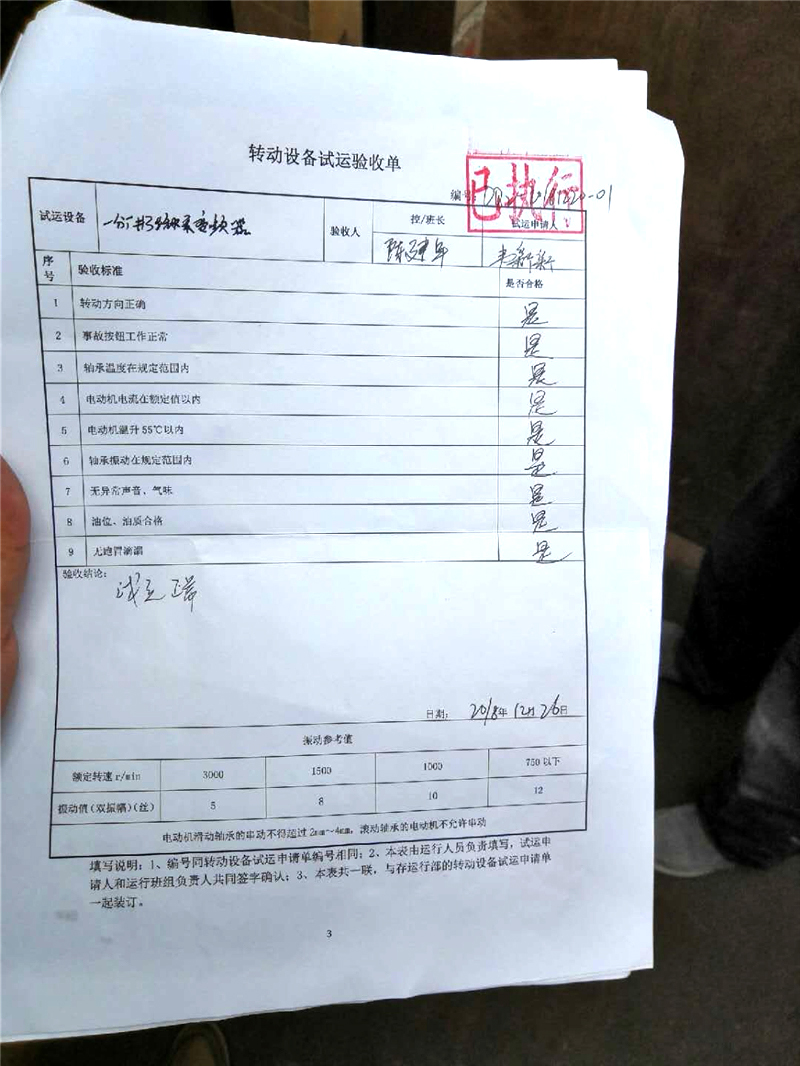 转动设备试运验收单
已执行
编号: -01
试运设备 验收人 控/班长 试运申请人
陈建军
序号 验收标准 是否合格
1 转动方向正确 是
2 事故按钮工作正常 是
3 轴承温度在规定范围内 是
4 电动机电流在额定值以内 是
5 电动机温升55℃以内 是
6 轴承振动在规定范围内 是
7 无异常声音、气味 是
8 油位、油质合格 是
9 无跑冒滴漏 是
验收结论:
试运正常
日期: 2018年12月26日
振动参考值
额定转速r/min 3000 1500 1000 750以下
振动值(双振幅)(丝) 5 8 10 12
电动机滑动轴承的串动不得超过2mm~4mm,滚动轴承的电动机不允许串动
填写说明:1、编号同转动设备试运申请单编号相同;2、本表由运行人员负责填写,试运申
请人和运行班组负责人共同签字确认;3、本表共一联,与存运行部的转动设备试运申请单
一起装订。
3